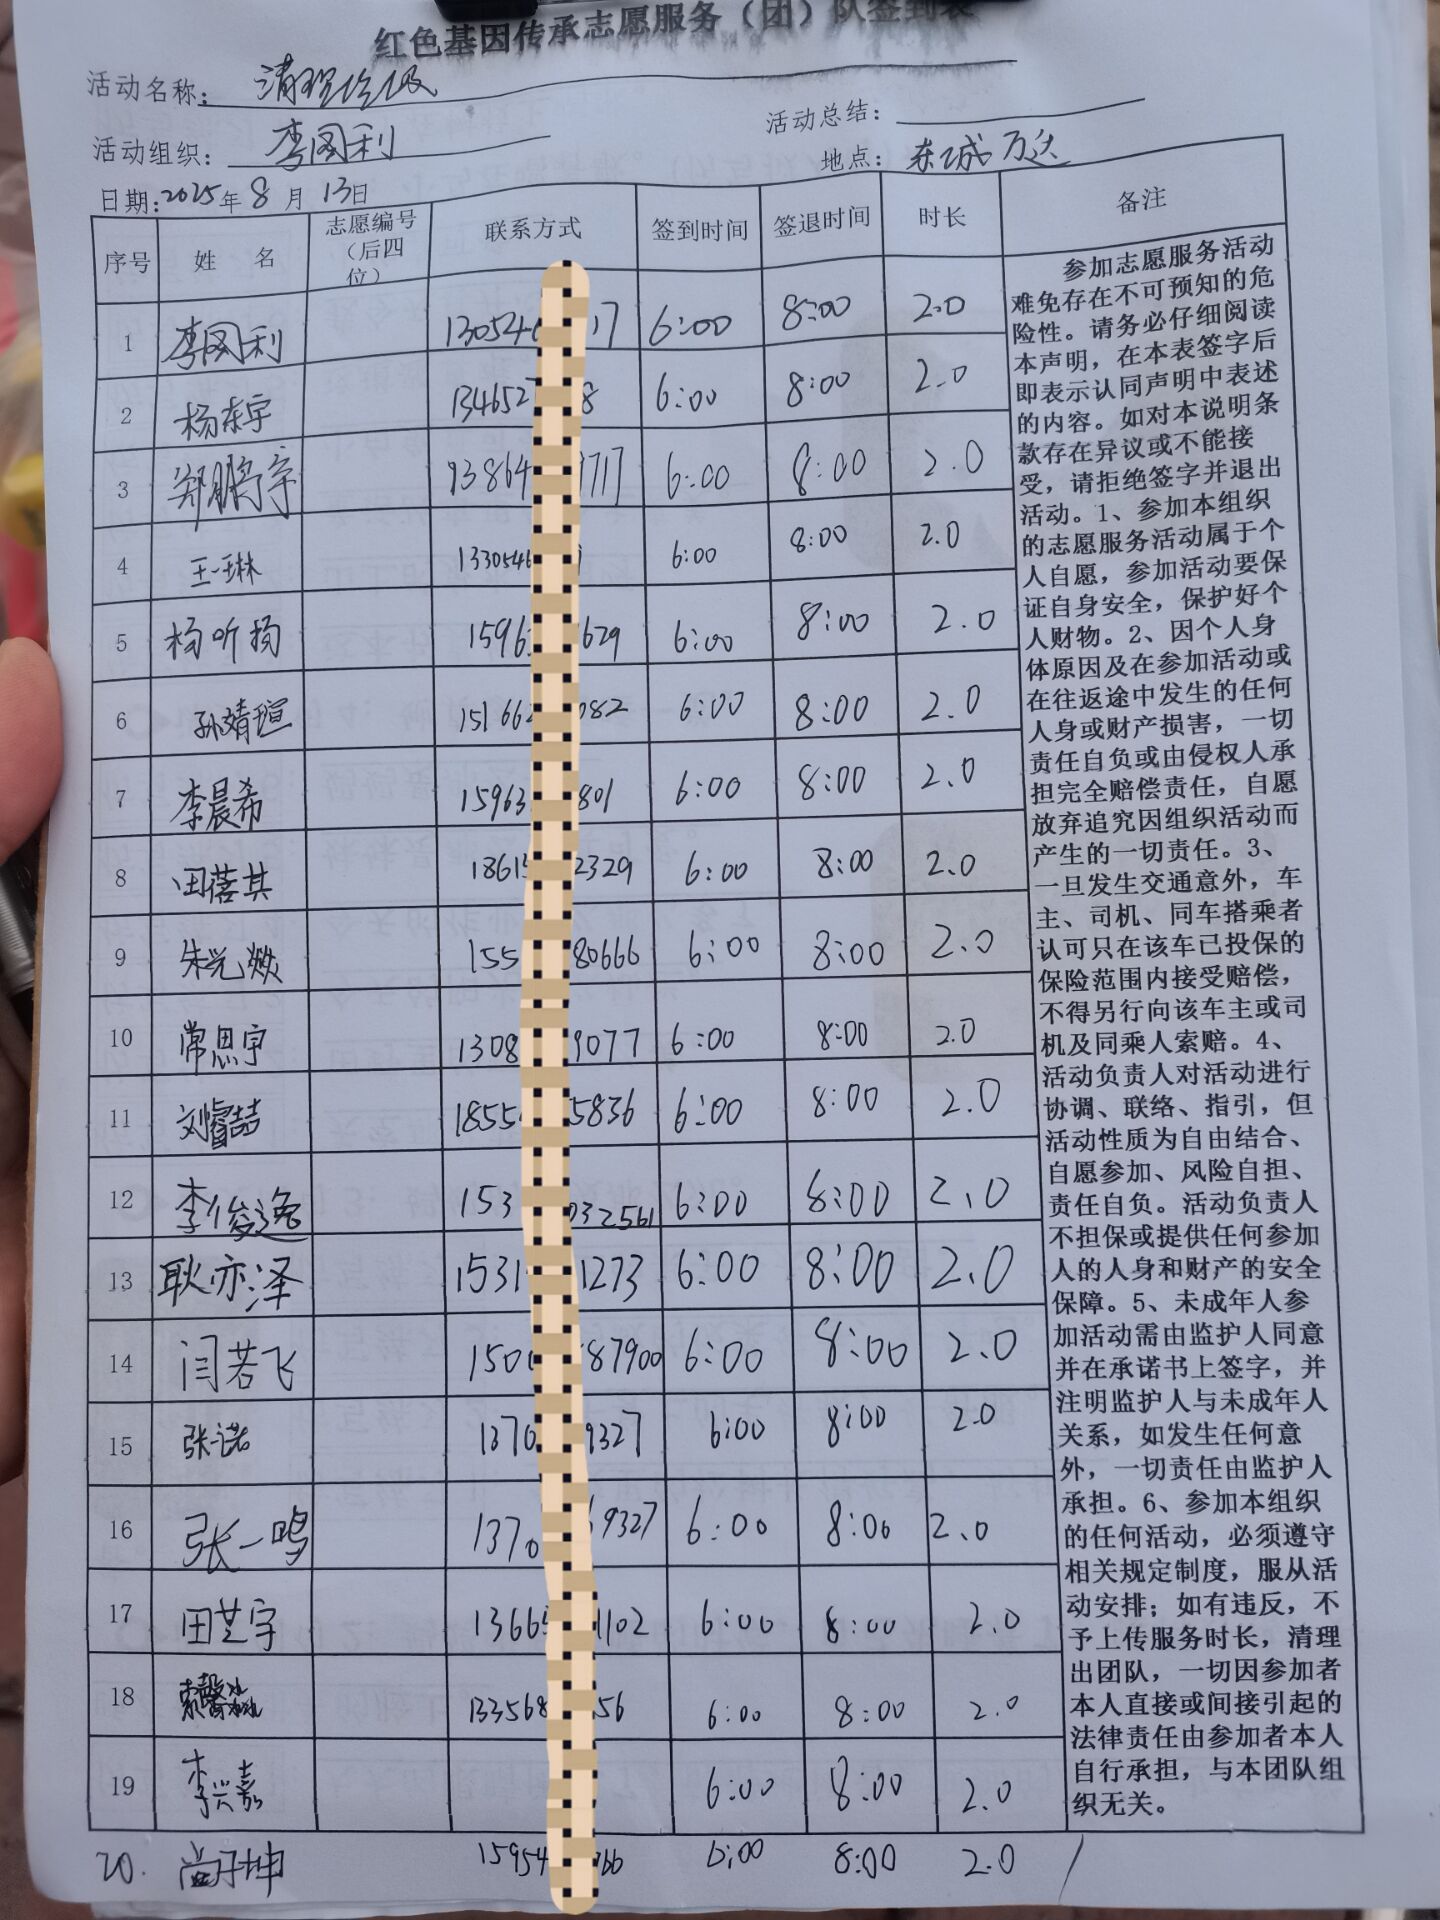 红色基因传承志愿服务（团）队签到表
活动名称：清理垃圾
活动总结：
活动组织：李图利
地点：东城万达
日期：2025年8月13日
序号 姓 名 志愿编号（后四位） 联系方式 签到时间 签退时间 时长 备注
1 李图利 130546 17 6:00 8:00 2.0
2 杨东宇 134652 8 6:00 8:00 2.0
3 郑鹏宇 13864 717 6:00 8:00 2.0
4 王一琳 1330546 6:00 8:00 2.0
5 杨听扬 1596 629 6:00 8:00 2.0
6 孙婧瑄 151662 082 6:00 8:00 2.0
7 李晨希 15963 801 6:00 8:00 2.0
8 田蓓其 1861 2329 6:00 8:00 2.0
9 朱光焱 155 80666 6:00 8:00 2.0
10 常恩宇 1308 9077 6:00 8:00 2.0
11 刘睿喆 1855 5836 6:00 8:00 2.0
12 李俊逸 153 032561 6:00 8:00 2.0
13 耿亦泽 1531 1273 6:00 8:00 2.0
14 闫若飞 150 87900 6:00 8:00 2.0
15 张一诺 1370 9327 6:00 8:00 2.0
16 张一鸣 1370 69327 6:00 8:00 2.0
17 田芝宇 1366 1102 6:00 8:00 2.0
18 133568 56 6:00 8:00 2.0
19 李兴嘉 6:00 8:00 2.0
20. 尚子坤 15954 766 6:00 8:00 2.0 /
参加志愿服务活动
难免存在不可预知的危
险性。请务必仔细阅读
本声明，在本表签字后
即表示认同声明中表述
的内容。如对本说明条
款存在异议或不能接
受，请拒绝签字并退出
活动。1、参加本组织
的志愿服务活动属于个
人自愿，参加活动要保
证自身安全，保护好个
人财物。2、因个人身
体原因及在参加活动或
在往返途中发生的任何
人身或财产损害，一切
责任自负或由侵权人承
担完全赔偿责任，自愿
放弃追究因组织活动而
产生的一切责任。3、
一旦发生交通意外，车
主、司机、同车搭乘者
认可只在该车已投保的
保险范围内接受赔偿，
不得另行向该车主或司
机及同乘人索赔。4、
活动负责人对活动进行
协调、联络、指引，但
活动性质为自由结合、
自愿参加、风险自担、
责任自负。活动负责人
不担保或提供任何参加
人的人身和财产的安全
保障。5、未成年人参
加活动需由监护人同意
并在承诺书上签字，并
注明监护人与未成年人
关系，如发生任何意
外，一切责任由监护人
承担。6、参加本组织
的任何活动，必须遵守
相关规定制度，服从活
动安排；如有违反，不
予上传服务时长，清理
出团队，一切因参加者
本人直接或间接引起的
法律责任由参加者本人
自行承担，与本团队组
织无关。